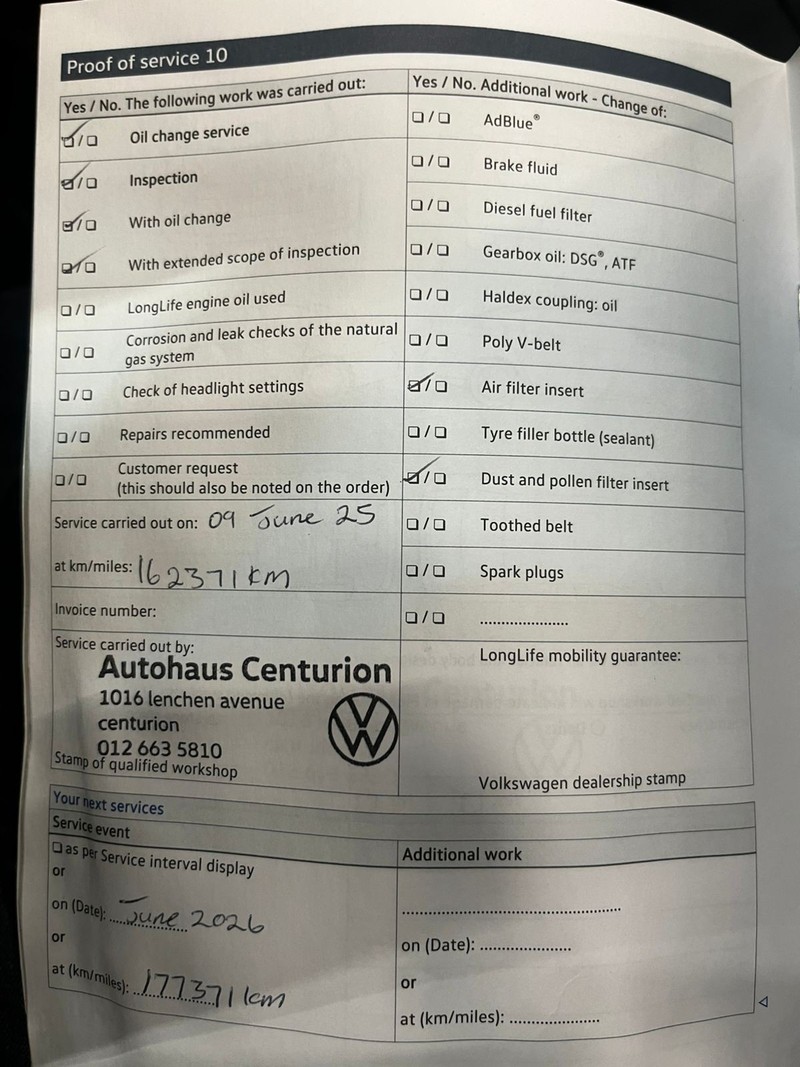 Proof of service 10
Yes / No. The following work was carried out:
☑/☐ Oil change service
☑/☐ Inspection
☑/☐ With oil change
☑/☐ With extended scope of inspection
☐/☐ LongLife engine oil used
☐/☐ Corrosion and leak checks of the natural
gas system
☐/☐ Check of headlight settings
☐/☐ Repairs recommended
☐/☐ Customer request
(this should also be noted on the order)
Service carried out on: 09 June 25
at km/miles: 162371 km
Invoice number:
Service carried out by:
Autohaus Centurion
1016 lenchen avenue
centurion
012 663 5810
Stamp of qualified workshop
Yes / No. Additional work - Change of:
☐/☐ AdBlue®
☐/☐ Brake fluid
☐/☐ Diesel fuel filter
☐/☐ Gearbox oil: DSG®, ATF
☐/☐ Haldex coupling: oil
☐/☐ Poly V-belt
☑/☐ Air filter insert
☐/☐ Tyre filler bottle (sealant)
☑/☐ Dust and pollen filter insert
☐/☐ Toothed belt
☐/☐ Spark plugs
☐/☐ ......................
LongLife mobility guarantee:
Volkswagen dealership stamp
Your next services
Service event
☐ as per Service interval display
or
on (Date): June 2026
or
at (km/miles): 177371 km
Additional work
......................................................
on (Date): ......................
or
at (km/miles): ......................